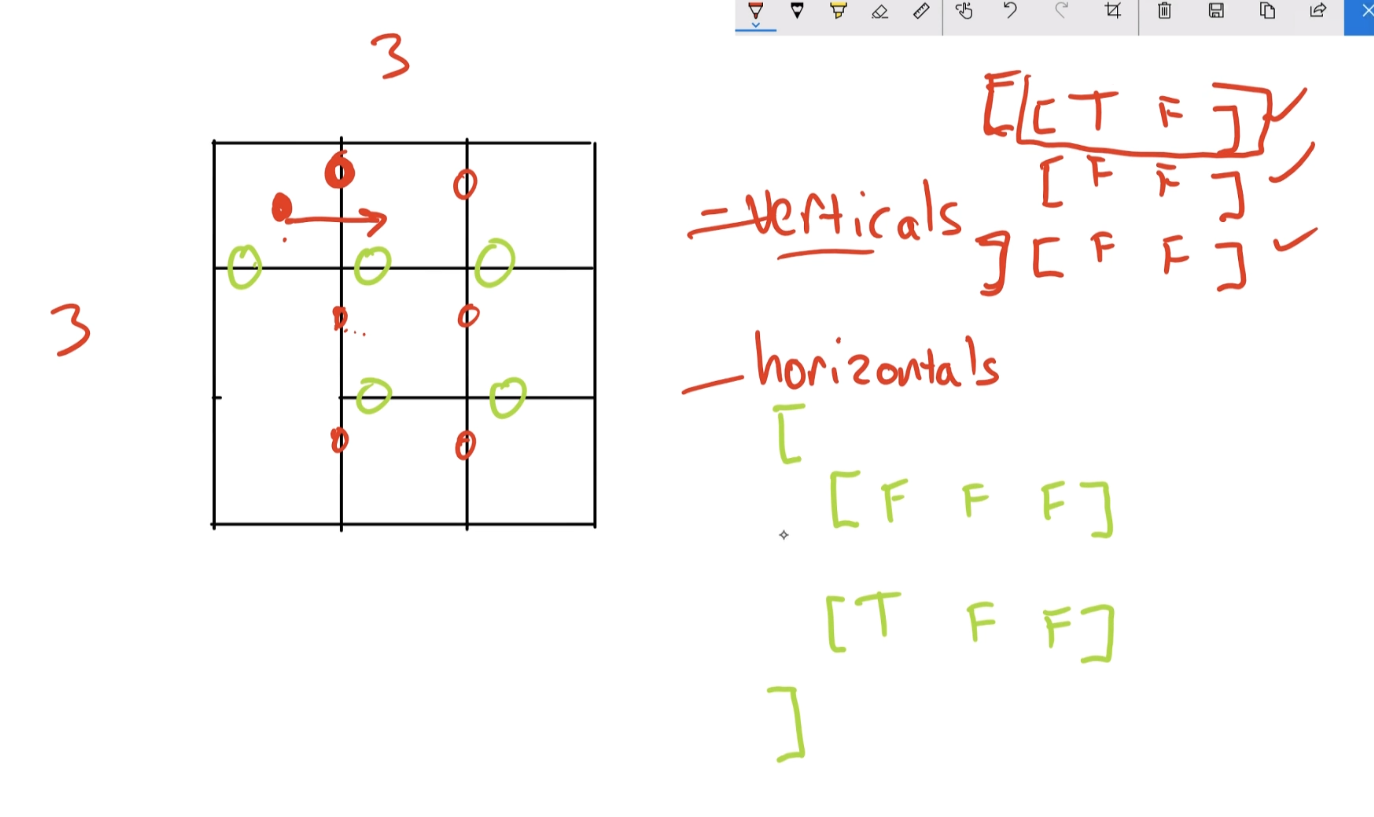 3
3
[[[ T F ]
= verticals
[ F F ]
] [ F F ]
— horizontals
[
[ F F F ]
[ T F F ]
]